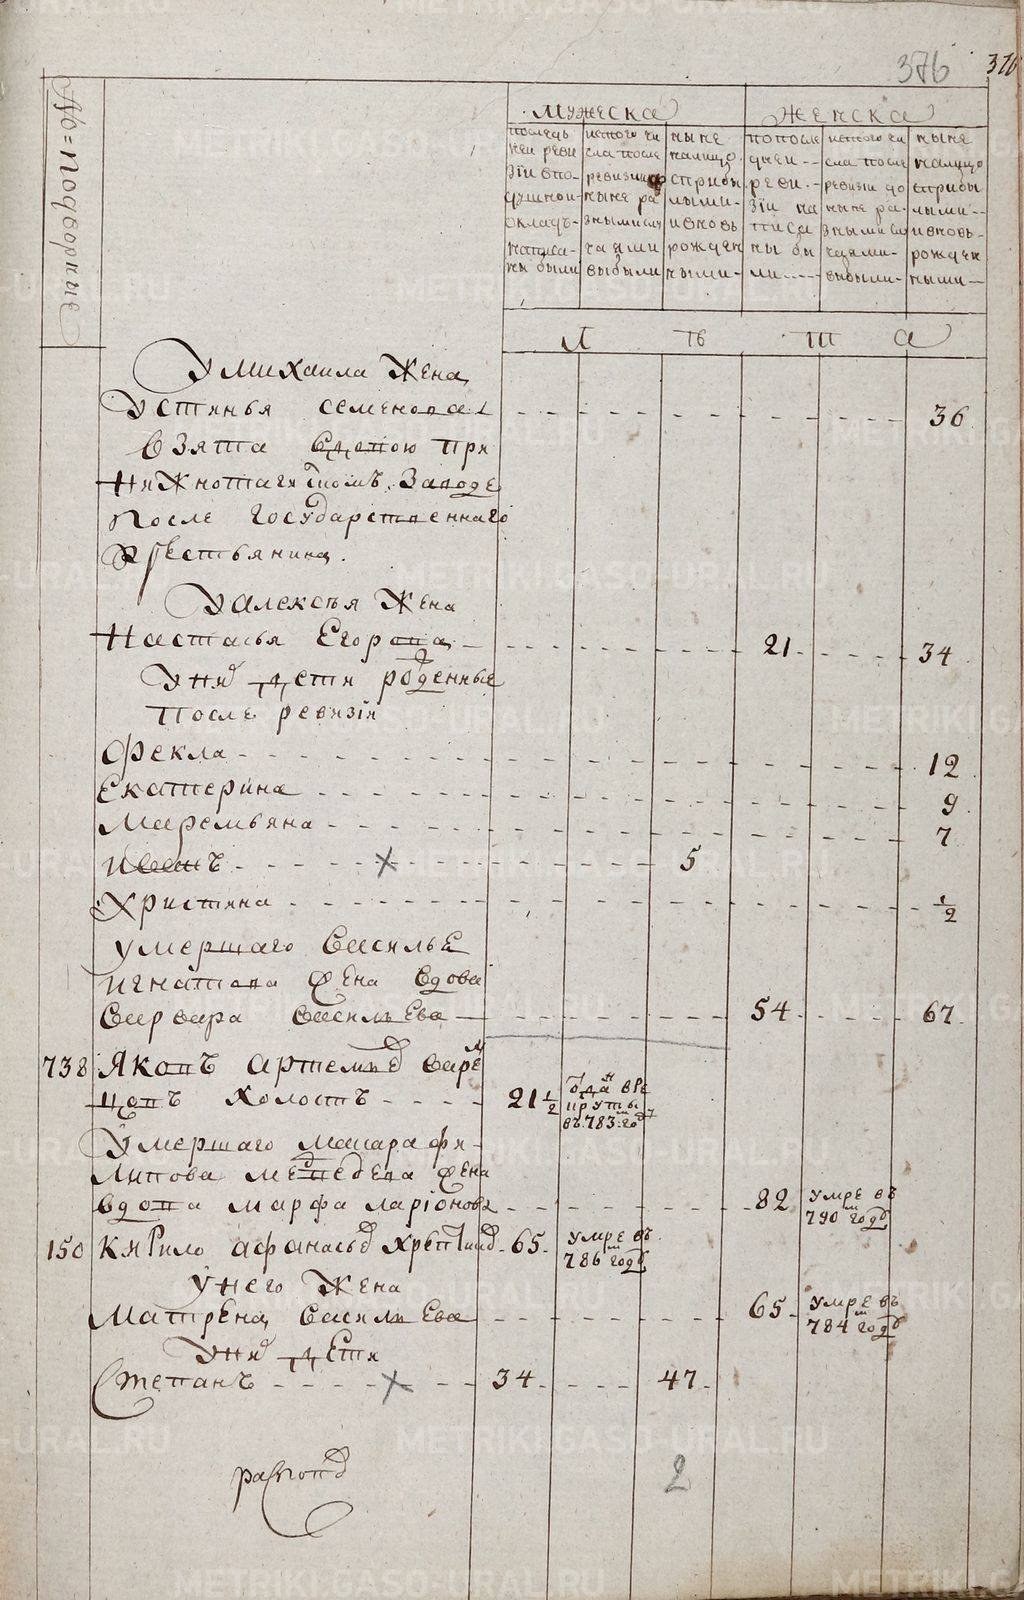 376
№ подворные
мужеска
женска
последъ
ней реви
зіи впо-
душном
окладѣ-
написа-
ны были
исtого чи
сла после
ревизии до
ныне ра
зными слу
чаями
выбыли
ныне
налицо
сприбы
лыми-
ивновь
рожден
ными-
попосле
дней--
реви.-
зіи на
писа
ны бы
ли
изтого чи
сла после
ревизіи до
ныне ра-
зными слу
чаями-
выбыли-
ныне
налицо
сприбы
лыми--
ивновь-
рожден
ными-
л ѣ т а
Умихаила Жена
Устинья семенова 36
взята вдовою при
Нижнотагилскомъ Заводе
после государственнаго
крестьянина.
Уалексѣя Жена
Настасья Егорова 21 34
Уних дети рожденные
после ревизіи
Фекла 12
Екатерина 9
Маремьяна 7
иванъ 5
Христина 1/2
умершаго василье
игнатова жена вдова
варвара васильева 54 67
738 Яковъ артемьев
цовъ холостъ 21 1/2 отдан вре
круты
въ 783 году
Умершаго макара фи-
липова медведева жена
вдова марфа ларіонова 82 умре въ
790 году
150 Кирило афанасьев 65 умре въ
786 году
у него Жена
Матрена васильева 65 умре въ
784 году
Уних дети
Степанъ 34 47
2